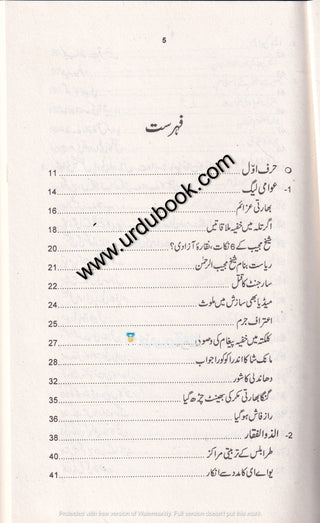 5
فہرست
حرف اوّل 11
1- عوامی لیگ 14
بھارتی عزائم 16
اگرتلہ میں خفیہ ملاقاتیں 18
شیخ مجیب کے 6 نکات، نقارۂ آزادی؟ 20
ریاست بنام شیخ مجیب الرحمٰن 21
سارجنٹ کا قتل 22
میڈیا بھی سازش میں ملوث 24
اعترافِ جرم 25
کلکتہ میں خفیہ پیغام کی وصولی 27
مانک شا کا اندرا کو کورا جواب 28
دھاندلی کا شور 32
گنگا بھارتی مکر کی بھینٹ چڑھ گیا 35
راز فاش ہو گیا 36
2- الذوالفقار 38
طرابلس کے تربیتی مراکز 40
یو اے ای کا مدد سے انکار 41
www.urdubook.com
Protected with free version of Watermarkly. Full version doesn't put this mark.